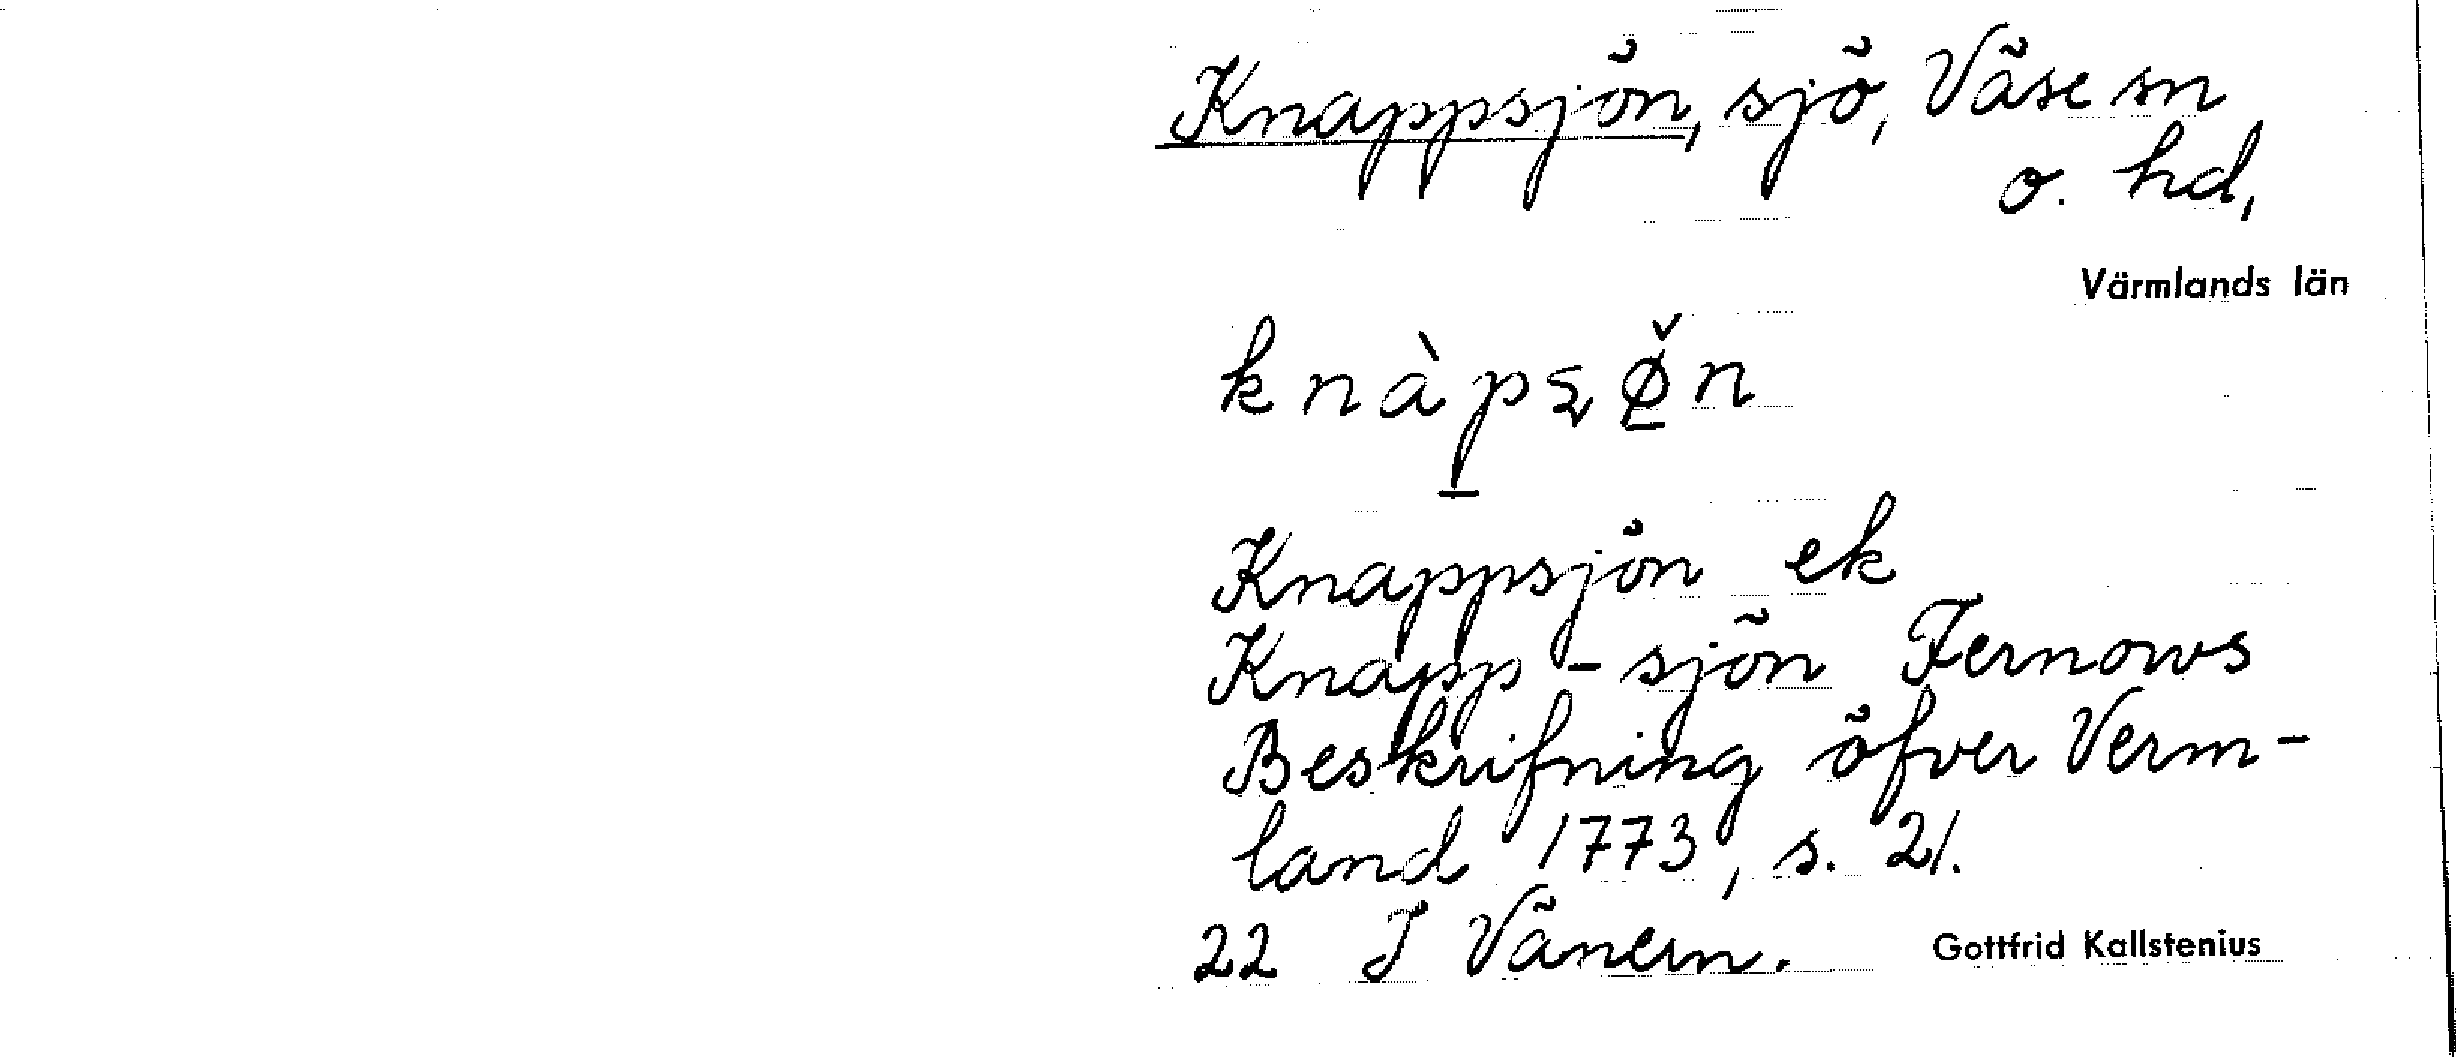 Knappsjön, sjö, Väse sn
o. hd,
Värmlands län
Knappsjön ek
Knapp-sjön Fernows
Beskrifning öfver Verm-
land 1773, s. 21.
22 I Vänern. Gottfrid Kallstenius